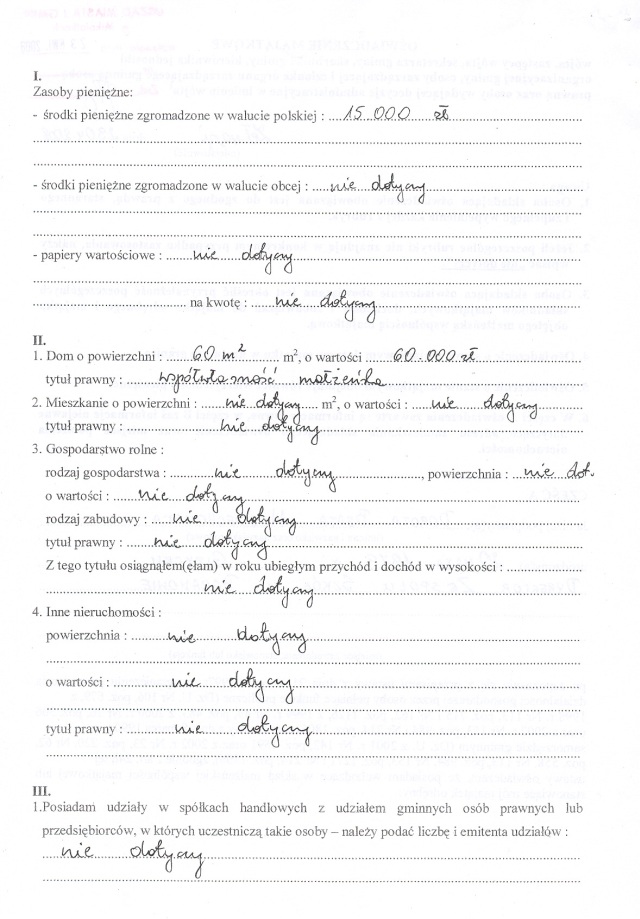 I.
Zasoby pieniężne:
- środki pieniężne zgromadzone w walucie polskiej : ....15.000......zł
- środki pieniężne zgromadzone w walucie obcej : .....nie...dotyczy
- papiery wartościowe : ........nie......dotyczy
na kwotę : .......nie.......dotyczy
II.
1. Dom o powierzchni : .......60 m²......... m², o wartości .......60.000 zł
tytuł prawny : .........współwłasność małżeńska
2. Mieszkanie o powierzchni : ......nie dotyczy.... m², o wartości : .....nie.....dotyczy
tytuł prawny : ..................nie...dotyczy
3. Gospodarstwo rolne :
rodzaj gospodarstwa : ..........nie........dotyczy........................, powierzchnia : ...nie dot.
o wartości : ......nie...dotyczy
rodzaj zabudowy : .....nie.......dotyczy
tytuł prawny : ......nie....dotyczy
Z tego tytułu osiągnąłem(ęłam) w roku ubiegłym przychód i dochód w wysokości : ...................
nie...dotyczy
4. Inne nieruchomości :
powierzchnia : .........nie........dotyczy
o wartości : ............nie.......dotyczy
tytuł prawny : ............nie........dotyczy
III.
1.Posiadam udziały w spółkach handlowych z udziałem gminnych osób prawnych lub
przedsiębiorców, w których uczestniczą takie osoby – należy podać liczbę i emitenta udziałów :
....nie.....dotyczy